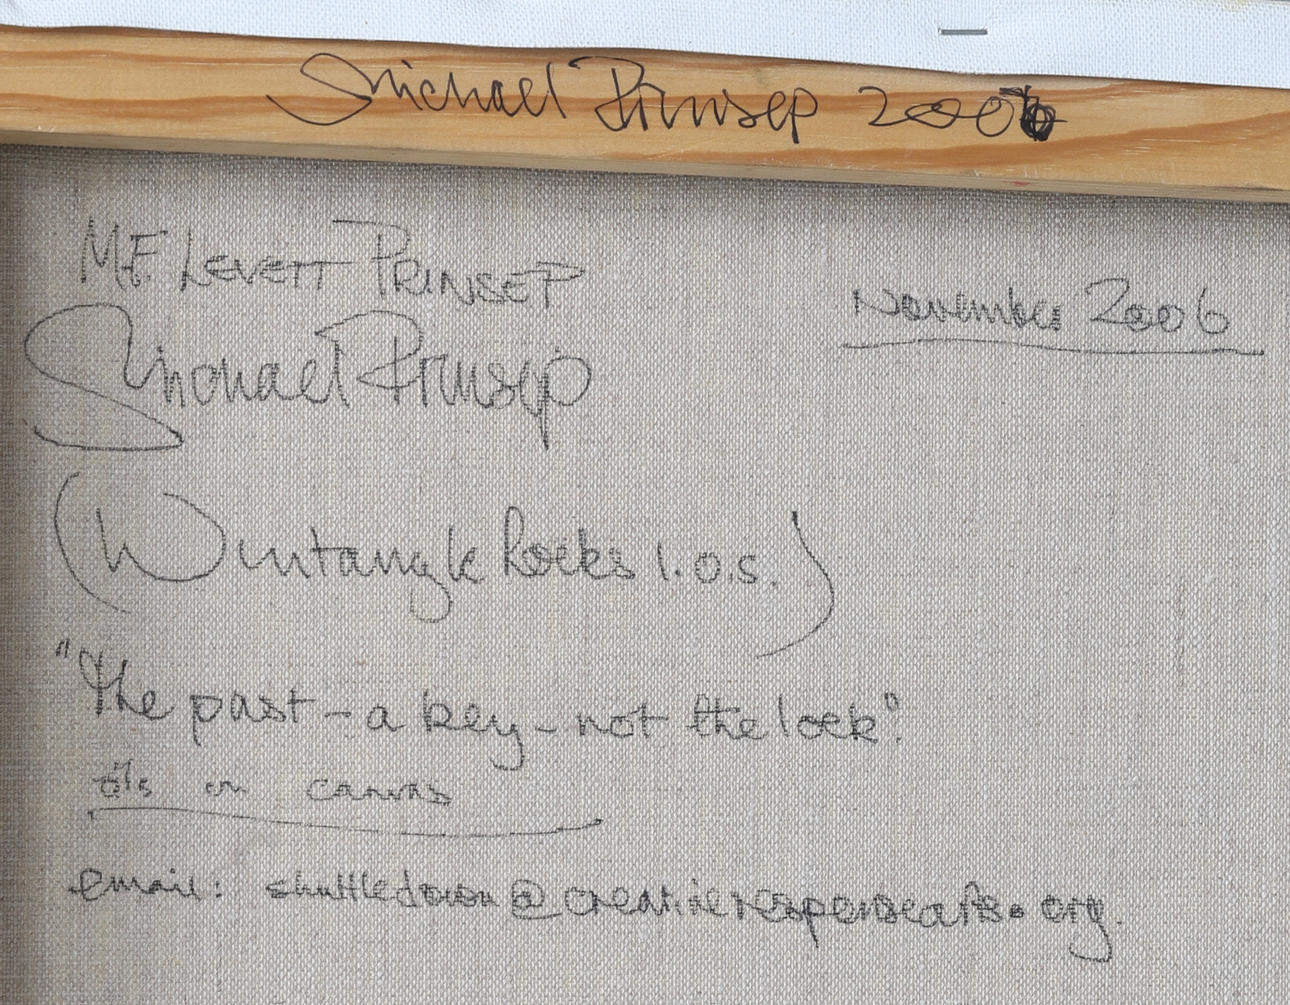 Michael Prinsep 2006
M.F. LEVETT PRINSEP
November 2006
Michael Prinsep
(Wintangle Rocks I.O.S.)
"The past - a key - not the lock".
oils on canvas
email: shuttledown@creativeresponsearts.org.